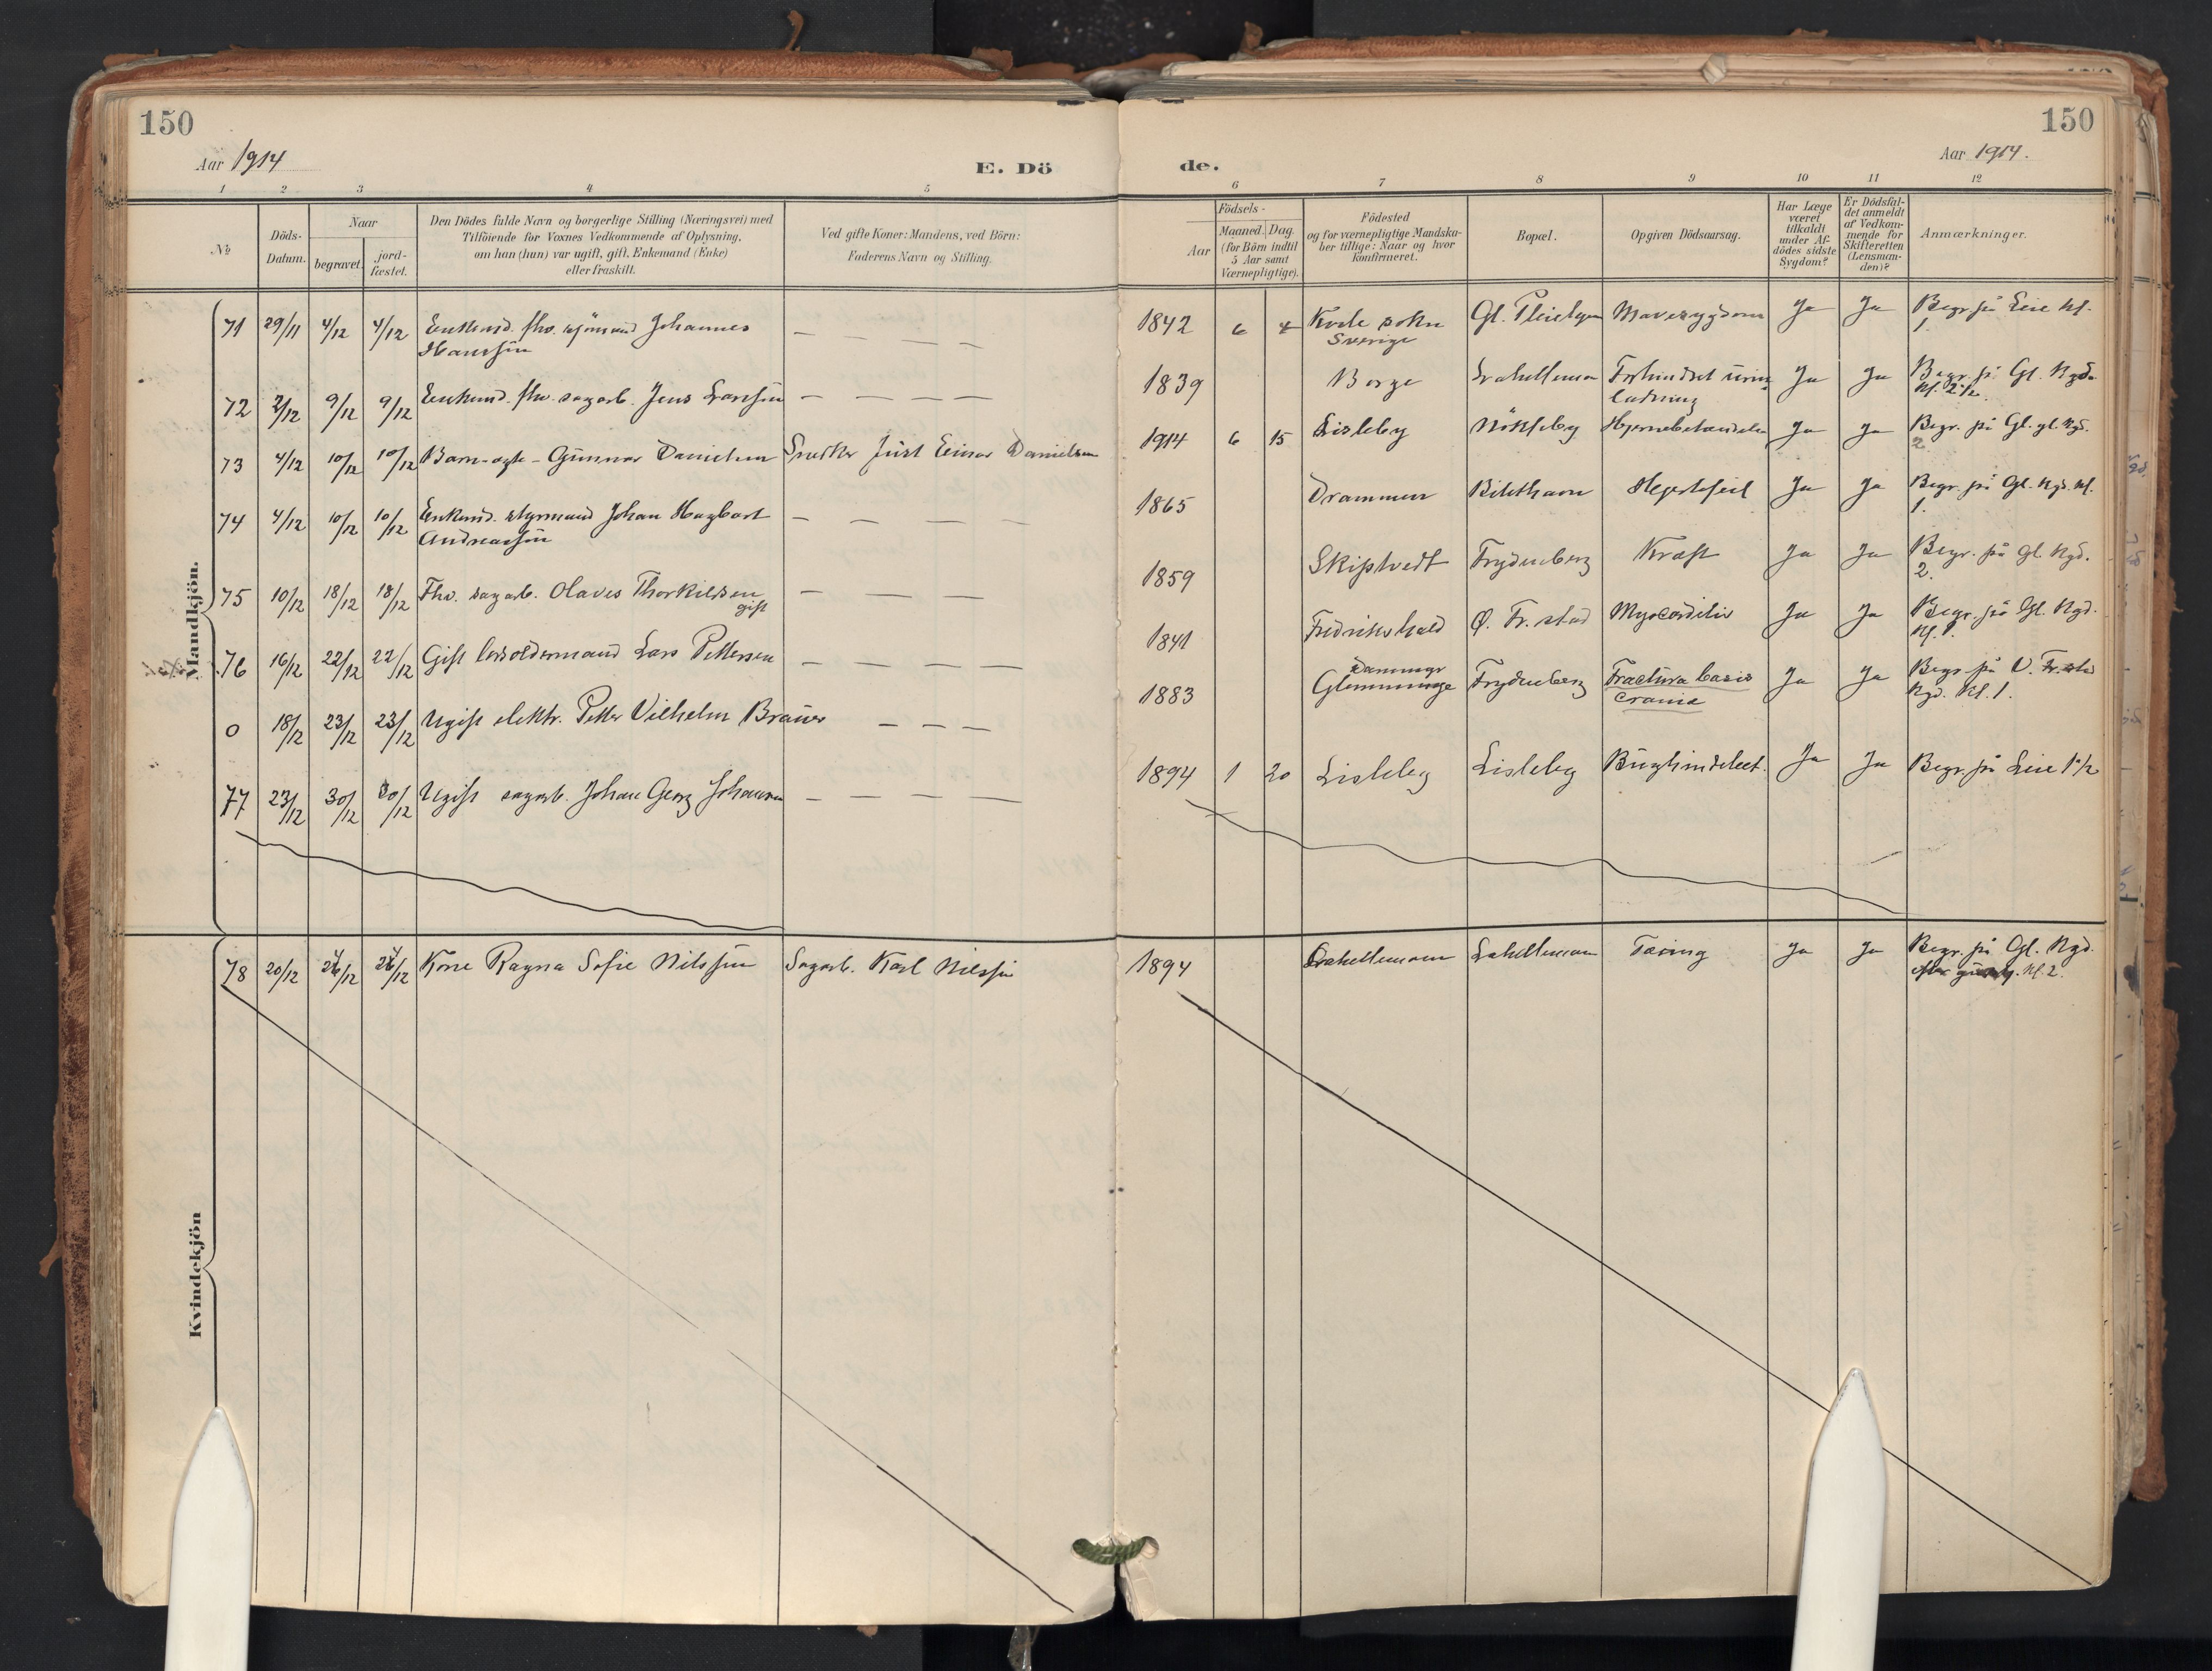 150
Aar 1914
E. Dö
1 2 3 4 5
№
Döds-
Datum.
Naar
begravet.
jord-
fæstet.
Den Dödes fulde Navn og borgerlige Stilling (Næringsvei) med
Tilföiende for Voxnes Vedkommende af Oplysning,
om han (hun) var ugift, gift, Enkemand (Enke)
eller fraskilt.
Ved gifte Koner: Mandens, ved Börn:
Faderens Navn og Stilling.
Mandkjön.
71 29/11 4/12 4/12 Enkemd. fhv. sjömand Johannes
Hanssen
72 2/12 9/12 9/12 Enkemd. fhv. sagarb. Jens Larssen
73 4/12 10/12 10/12 Barn - ægte - Gunnar Danielsen Snedker Just Einar Danielsen
74 4/12 10/12 10/12 Enkemd. styrmand Johan Hagbart
Andreassen
75 10/12 18/12 18/12 Fhv. sagarb. Olaves Thorkildsen
gift
76 16/12 22/12 22/12 Gift losoldermand Lars Pettersen
0 18/12 23/12 23/12 Ugift elektr. Petter Vilhelm
77 23/12 30/12 30/12 Ugift sagarb. Johan Georg Johansen
Kvindekjön
78 20/12 Kone Ragna Sofie Nilssen Sagarb. Karl Nilssen
150
Aar 1914.
de.
6 7 8 9 10 11 12
Aar
Födsels-
Maaned. Dag.
(for Börn indtil
5 Aar samt
Værnepligtige).
Födested
og for værnepligtige Mandska-
ber tillige: Naar og hvor
konfirmeret.
Bopæl.
Opgiven Dödsaarsag.
Har Læge
været
tilkaldt
under Af-
dödes sidste
Sygdom?
Er Dödsfal-
det anmeldt
af Vedkom-
mende for
Skifteretten
(Lensman-
den)?
Anmærkninger.
1842 6 4 sokn Gl. Pleiehjem Mavesygdom Ja Ja Begr. på Leie Kl.
Sverige 1.
1839 Borge Forhindret urin Ja Ja Begr. på Gl. Kgd.
ladning Kl. 2 1/2.
1914 6 15 Lisleby Nökleby Hjernebetændelse Ja Ja Begr. på Gl. gl. Kgd.
2
1865 Drammen Hjertefeil Ja Ja Begr. på Gl. Kgd. Kl.
1.
1859 Skiptvedt Frydenberg Kræft Ja Ja Begr. på Gl. Kgd.
2.
1841 Fredrikshald Ø. Fr.stad Myocarditis Ja Ja Begr. på Gl. Kgd.
Kl. 1.
1883 Glemminge Frydenberg Fractura basis Ja Ja Begr på V. Fr.stad
crania Kgd. Kl. 1.
1894 1 20 Lisleby Lisleby Ja Ja Begr. på Leie 1 1/2
1894 Tæring Ja Ja Begr. på Gl. Kgd.
Kl. 2.